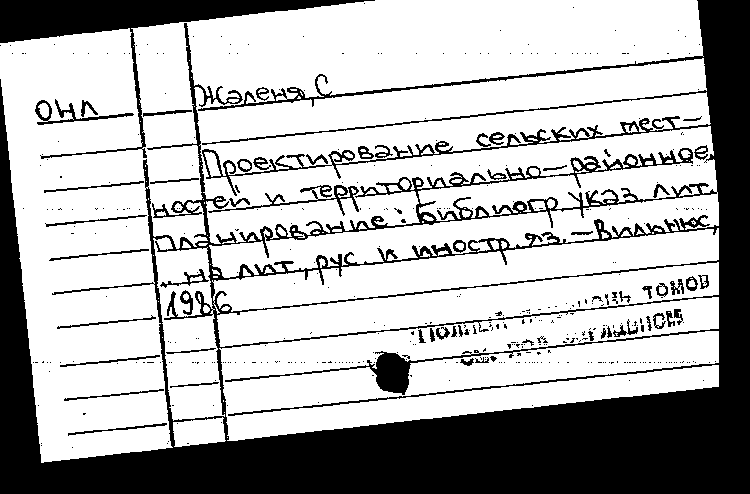 ОНЛ
Жаленя, С
Проектирование сельских мест-
ностей и территориально-районное
планирование: Библиогр. указ. лит.
... на лит., рус. и иностр. яз. - Вильнюс,
1986.
томов
см. под